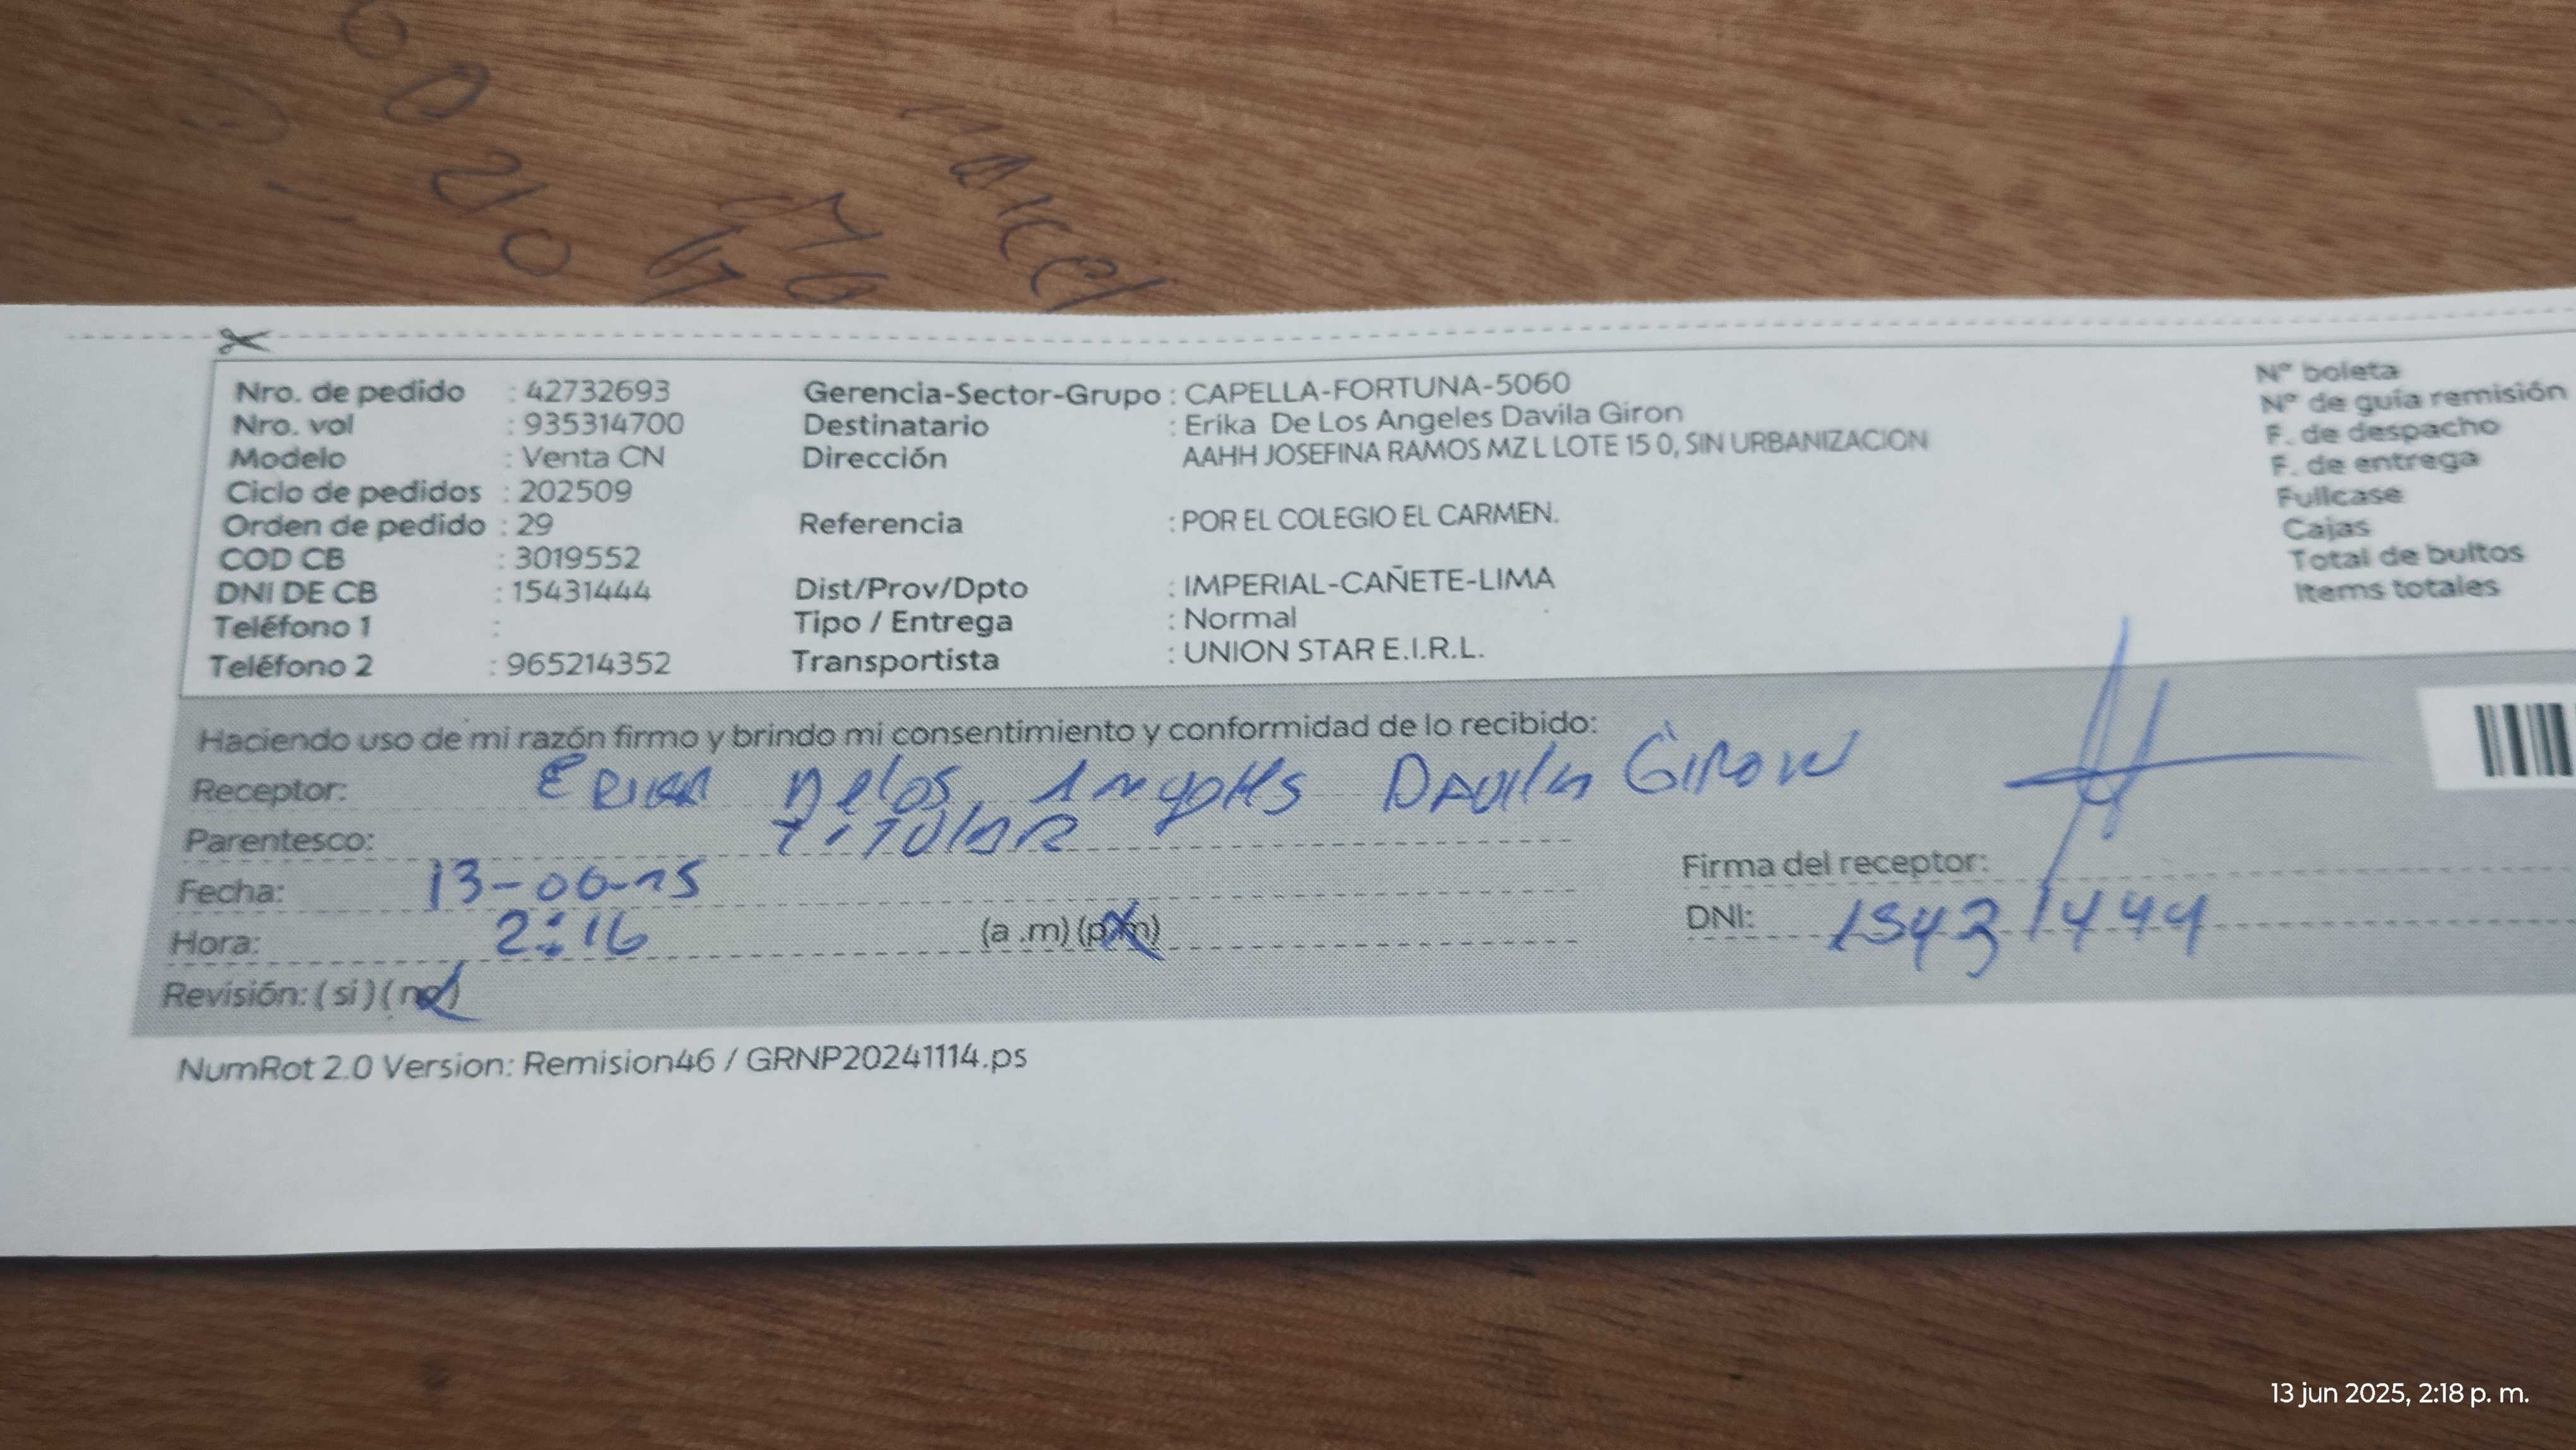 Nro. de pedido : 42732693
Nro. vol : 935314700
Modelo : Venta CN
Ciclo de pedidos : 202509
Orden de pedido : 29
COD CB : 3019552
DNI DE CB : 15431444
Teléfono 1 :
Teléfono 2 : 965214352
Gerencia-Sector-Grupo : CAPELLA-FORTUNA-5060
Destinatario : Erika De Los Angeles Davila Giron
Dirección AAHH JOSEFINA RAMOS MZ L LOTE 15 0, SIN URBANIZACION
Referencia : POR EL COLEGIO EL CARMEN.
Dist/Prov/Dpto : IMPERIAL-CAÑETE-LIMA
Tipo / Entrega : Normal
Transportista : UNION STAR E.I.R.L.
N° boleta
N° de guía remisión
F. de despacho
F. de entrega
Fullcase
Cajas
Total de bultos
Items totales
Haciendo uso de mi razón firmo y brindo mi consentimiento y conformidad de lo recibido:
Receptor: Davila Giron
Parentesco: TITULAR
Fecha: 13-06-
Hora: 2:16 (a .m) (p.m)
Revisión: ( si ) ( no )
Firma del receptor:
DNI: 15431444
NumRot 2.0 Version: Remision46 / GRNP20241114.ps
13 jun 2025, 2:18 p. m.